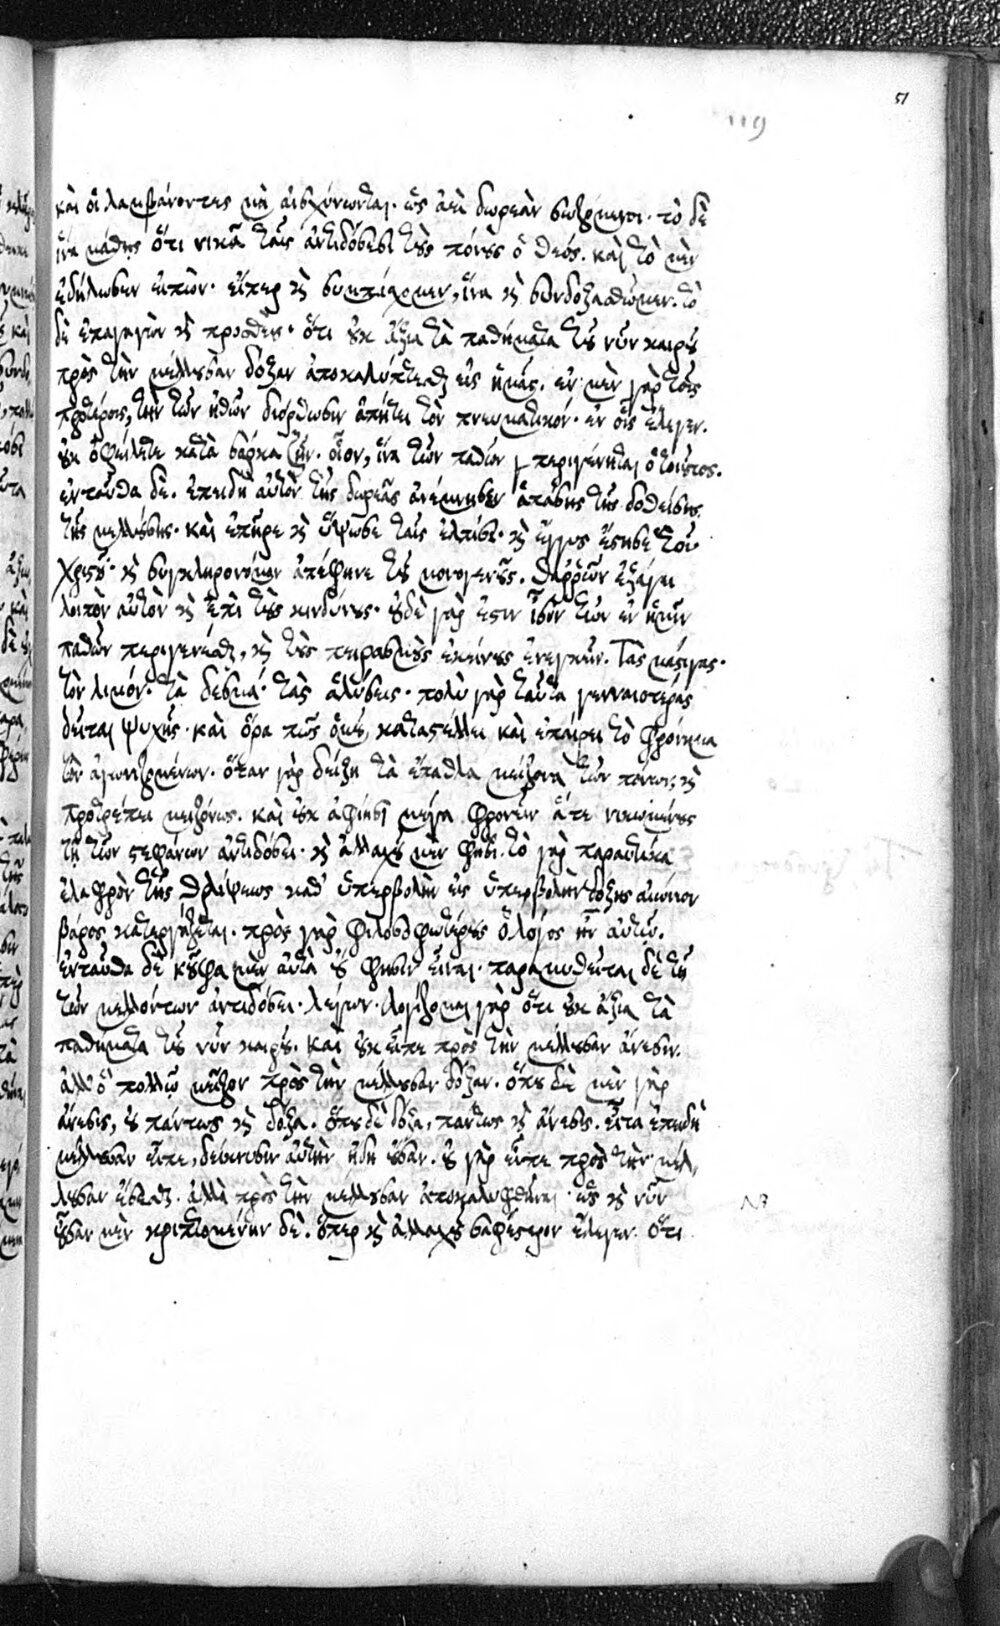 51
119
καὶ οἱ λαμβάνοντες μὴ αἰσχύνωνται. ὡς ἀεὶ δωρεὰν σωζόμενοι. τὸ δὲ
ἵνα μάθῃς ὅτι νικᾶ ταῖς ἀντιδόσεσι τοὺς πόνους ὁ θεός. καὶ τὸ μὲν
ἐδήλωσεν εἰπών. εἴπερ καὶ συμπάσχομεν, ἵνα καὶ συνδοξασθῶμεν. τὸ
δὲ ἐπαγαγὼν καὶ προσθεὶς. ὅτι οὐκ ἄξια τὰ παθήματα τοῦ νῦν καιροῦ
πρὸς τὴν μέλλουσαν δόξαν ἀποκαλύπτεσθαι εἰς ἡμᾶς. ἐν μὲν γὰρ τοῖς
προτέροις, τὴν τῶν ἠθῶν διόρθωσιν ἀπήτει τὸν πνευματικόν. ἐν οἷς ἔλεγεν.
οὐκ ὀφείλετε κατὰ σάρκα ζῆν. οἷον, ἵνα τῶν παθῶν περιγένηται ὁ τοιοῦτος.
ἐνταῦθα δὲ. ἐπειδὴ αὐτὸν τῆς δωρεᾶς ἀνέμνησεν ἁπάσης τῆς δοθείσης
τῆς μελλούσης. καὶ ἐπῆρε καὶ ὕψωσε ταῖς ἐλπίσι. καὶ ἐγγὺς ἔστησε τοῦ
Χριστοῦ. καὶ συγκληρονόμον ἀπέφηνε τοῦ μονογενοῦς. θαρρῶν ἐξάγει
λοιπὸν αὐτὸν καὶ ἐπὶ τοὺς κινδύνους. οὐδὲ γάρ ἐστιν ἴσον τῶν ἐν ἡμῖν
παθῶν περιγενέσθαι, καὶ τοὺς πειρασμοὺς ἐκείνους ἐνεγκεῖν. Τὰς μάστιγας.
τὸν λιμόν. τὰ δεσμά. τὰς ἁλύσεις. πολὺ γὰρ ταῦτα γενναιοτέρας
δεῖται ψυχῆς. καὶ ὅρα πῶς ὁμοῦ, καταστέλλει καὶ ἐπαίρει τὸ φρόνημα
τῶν ἀγωνιζομένων. ὅταν γὰρ δείξῃ τὰ ἔπαθλα μείζονα τῶν πόνων, καὶ
προτρέπει μειζόνως. καὶ οὐκ ἀφίησι μέγα φρονεῖν ἅτε νικωμένους
τῇ τῶν στεφάνων ἀντιδόσει. καὶ ἀλλαχοῦ μὲν φησὶ. τὸ γὰρ παραυτίκα
ἐλαφρὸν τῆς θλίψεως καθ' ὑπερβολὴν εἰς ὑπερβολὴν δόξης αἰώνιον
βάρος κατεργάζεται. πρὸς γὰρ φιλοσοφωτέρους ὁ λόγος ἦν αὐτῷ.
ἐνταῦθα δὲ κοῦφα μὲν αὐτὰ οὔ φησιν εἶναι. παραμυθεῖται δὲ τῇ
τῶν μελλόντων ἀντιδόσει. λέγων. λογίζομαι γὰρ ὅτι οὐκ ἄξια τὰ
παθήματα τοῦ νῦν καιροῦ. καὶ οὐκ εἶπε πρὸς τὴν μέλλουσαν ἄνεσιν.
ἀλλ' ὃ πολλῷ μεῖζον πρὸς τὴν μέλλουσαν δόξαν. ὅπου μὲν γὰρ
ἄνεσις, οὐ πάντως καὶ δόξα. ὅπου δὲ δόξα, πάντως καὶ ἄνεσις. εἶτα ἐπειδὴ
μέλλουσαν εἶπε, δείκνυσιν αὐτὴν ἤδη οὖσαν. οὐ γὰρ εἶπε πρὸς τὴν μέλ-
λουσαν ἔσεσθαι. ἀλλὰ πρὸς τὴν μέλλουσαν ἀποκαλυφθῆναι. ὡς καὶ νῦν
οὖσαν μὲν κρυπτομένην δὲ. ὅπερ καὶ ἀλλαχοῦ σαφέστερον ἔλεγεν. ὅτι